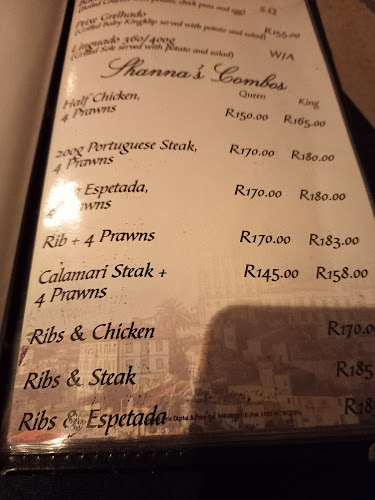 (Boiled Codfish with potato, chick peas and egg) S.Q
Peixe Grelhado
(Grilled Baby Kingklip served with potato and salad) R155.00
Linguado 360/400g
(Grilled Sole served with potato and salad) W/A
Shanna's Combos
Queen King
Half Chicken,
4 Prawns R150.00 R165.00
200g Portuguese Steak,
4 Prawns R170.00 R180.00
Espetada,
R170.00 R180.00
Rib + 4 Prawns R170.00 R183.00
Calamari Steak +
4 Prawns R145.00 R158.00
Ribs & Chicken R170.0
Ribs & Steak R185
Ribs & Espetada R18